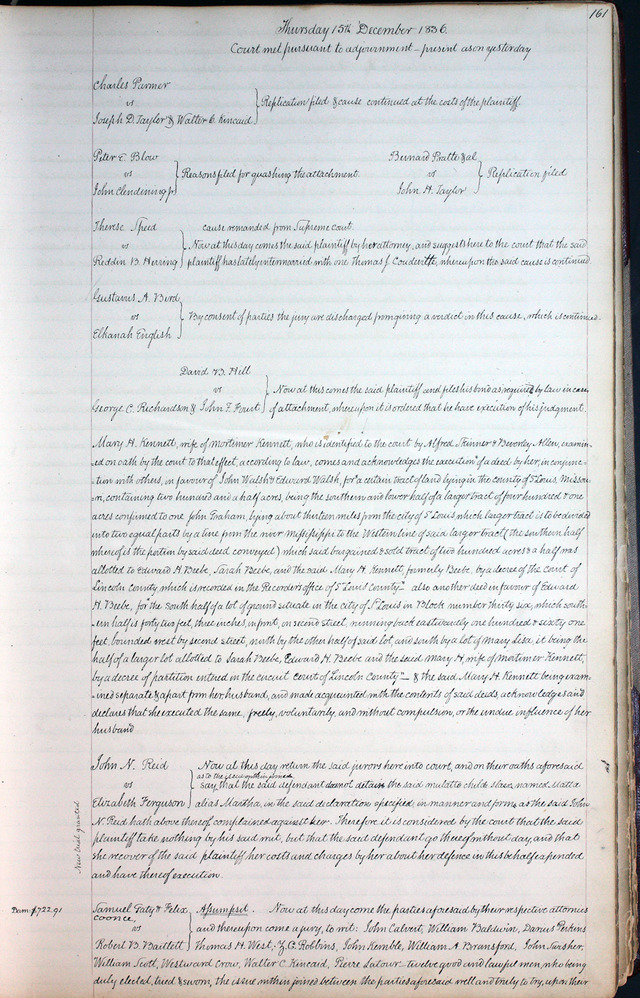 161
Thursday 15th December 1836.
Court met pursuant to adjournment – present as on yesterday
Charles Parmer
vs
Joseph D. Taylor & Walter C. Kincaid
Replication filed & cause continued at the costs of the plaintiff.
Peter E Blow
vs
John Clendenning jr
Reasons filed for quashing the attachment.
Bernard Pratte & al
vs
John H. Taylor
Replication filed
Therese Speed
vs
Reddin B. Herring
cause remanded from Supreme court.
Now at this day comes the said plaintiff by her attorney, and suggests here to the court that the said
plaintiff has lately intermarried with one Thomas J. whereupon the said cause is continued.
Gustavus A. Bird
vs
Elkanah English
By consent of parties the jury are discharged from giving a verdict in this cause, which is continued.
David B. Hill
vs
George C. Richardson & John F.
Now at this comes the said plaintiff and files his bond as required by law in case
of attachment, whereupon it is ordered that he have execution of his judgment.
Mary H. Kennett, wife of Mortimer Kennett, who is identified to the court by Alfred Skinner & Beverley Allen, examin-
ed on oath by the court to that effect, according to law, comes and acknowledges the execution of a deed by her, in conjunc-
tion with others, in favour of John Walsh & Edward Walsh, for a certain tract of land lying in the county of St Louis, Missou-
ri, containing two hundred and a half acres, being the southern and lower half of a larger tract of four hundred & one
acres confirmed to one John Graham, lying about thirteen miles from the city of St Louis, which larger tract is to be divided
into two equal parts by a line from the river Mississippi to the Western line of said larger tract (the southern half
whereof is the portion by said deed conveyed) which said bargained & sold tract of two hundred acres & a half was
allotted to Edward H. Beebe, Sarah Beebe, and the said Mary H. Kennett, formerly Beebe, by a decree of the court of
Lincoln County, which is recorded in the Recorder's office of St Louis County – also another deed in favour of Edward
H. Beebe, for the South half of a lot of ground situate in the city of St Louis in Block number thirty six, which south-
ern half is forty two feet, three inches, in front, on second street, running back eastwardly one hundred & sixty one
feet, bounded west by second street, north by the other half of said lot, and south by a lot of Mary Lisa, it being the
half of a larger lot allotted to Sarah Beebe, Edward H. Beebe and the said Mary H, wife of Mortimer Kennett,
by a decree of partition entered in the circuit court of Lincoln County – & the said Mary H. Kennett being exam-
ined separate & apart from her husband, and made acquainted with the contents of said deeds, acknowledges and
declares that she executed the same, freely, voluntarily, and without compulsion, or the undue influence of her
husband
John N. Reid
vs
Elizabeth Ferguson
New trial granted
Now at this day return the said jurors here into court, and on their oaths aforesaid
as to the issue within joined
say, that the said defendant does not detain the said mulatto child slave, named Matta
alias Martha, in the said declaration specified, in manner and form, as the said John
N. Reid hath above thereof complained against her. Therefore it is considered by the court that the said
plaintiff take nothing by his said writ, but that the said defendant go thereof without day, and that
she recover of the said plaintiff her costs and charges by her about her defence in this behalf expended
and have thereof execution.
Dam: $722.91
Samuel Gaty & Felix
Coonce,
vs
Robert B. Bartlett
Assumpsit. Now at this day come the parties aforesaid by their respective attornies
and thereupon come a jury, to wit: John Calvert, William Baldwin, Darius Perkins
Thomas H. West, Z. G. Robbins, John Kemble, William A. Bransford, John
William Scott, Westward Crow, Walter C. Kincaid, Pierre Latour – twelve good and lawful men, who being
duly elected, tried & sworn, the issue within joined between the parties aforesaid well and truly to try, upon their